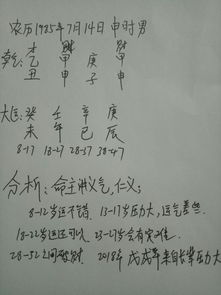 农历1985年7月14日 申时男
才 财
乾: 乙 甲 庚 甲
丑 申 子 申
大运: 癸 壬 辛 庚
未 午 巳 辰
8-17 18-27 28-37 38-47
分析: 命主讲义气,仁义;
8-12岁运不错. 13-17岁压力大,运气差些.
18-22岁运还可以. 23-27岁会有灾难.
28-32之间破财. 2018年 戊戌年来自长辈压力大